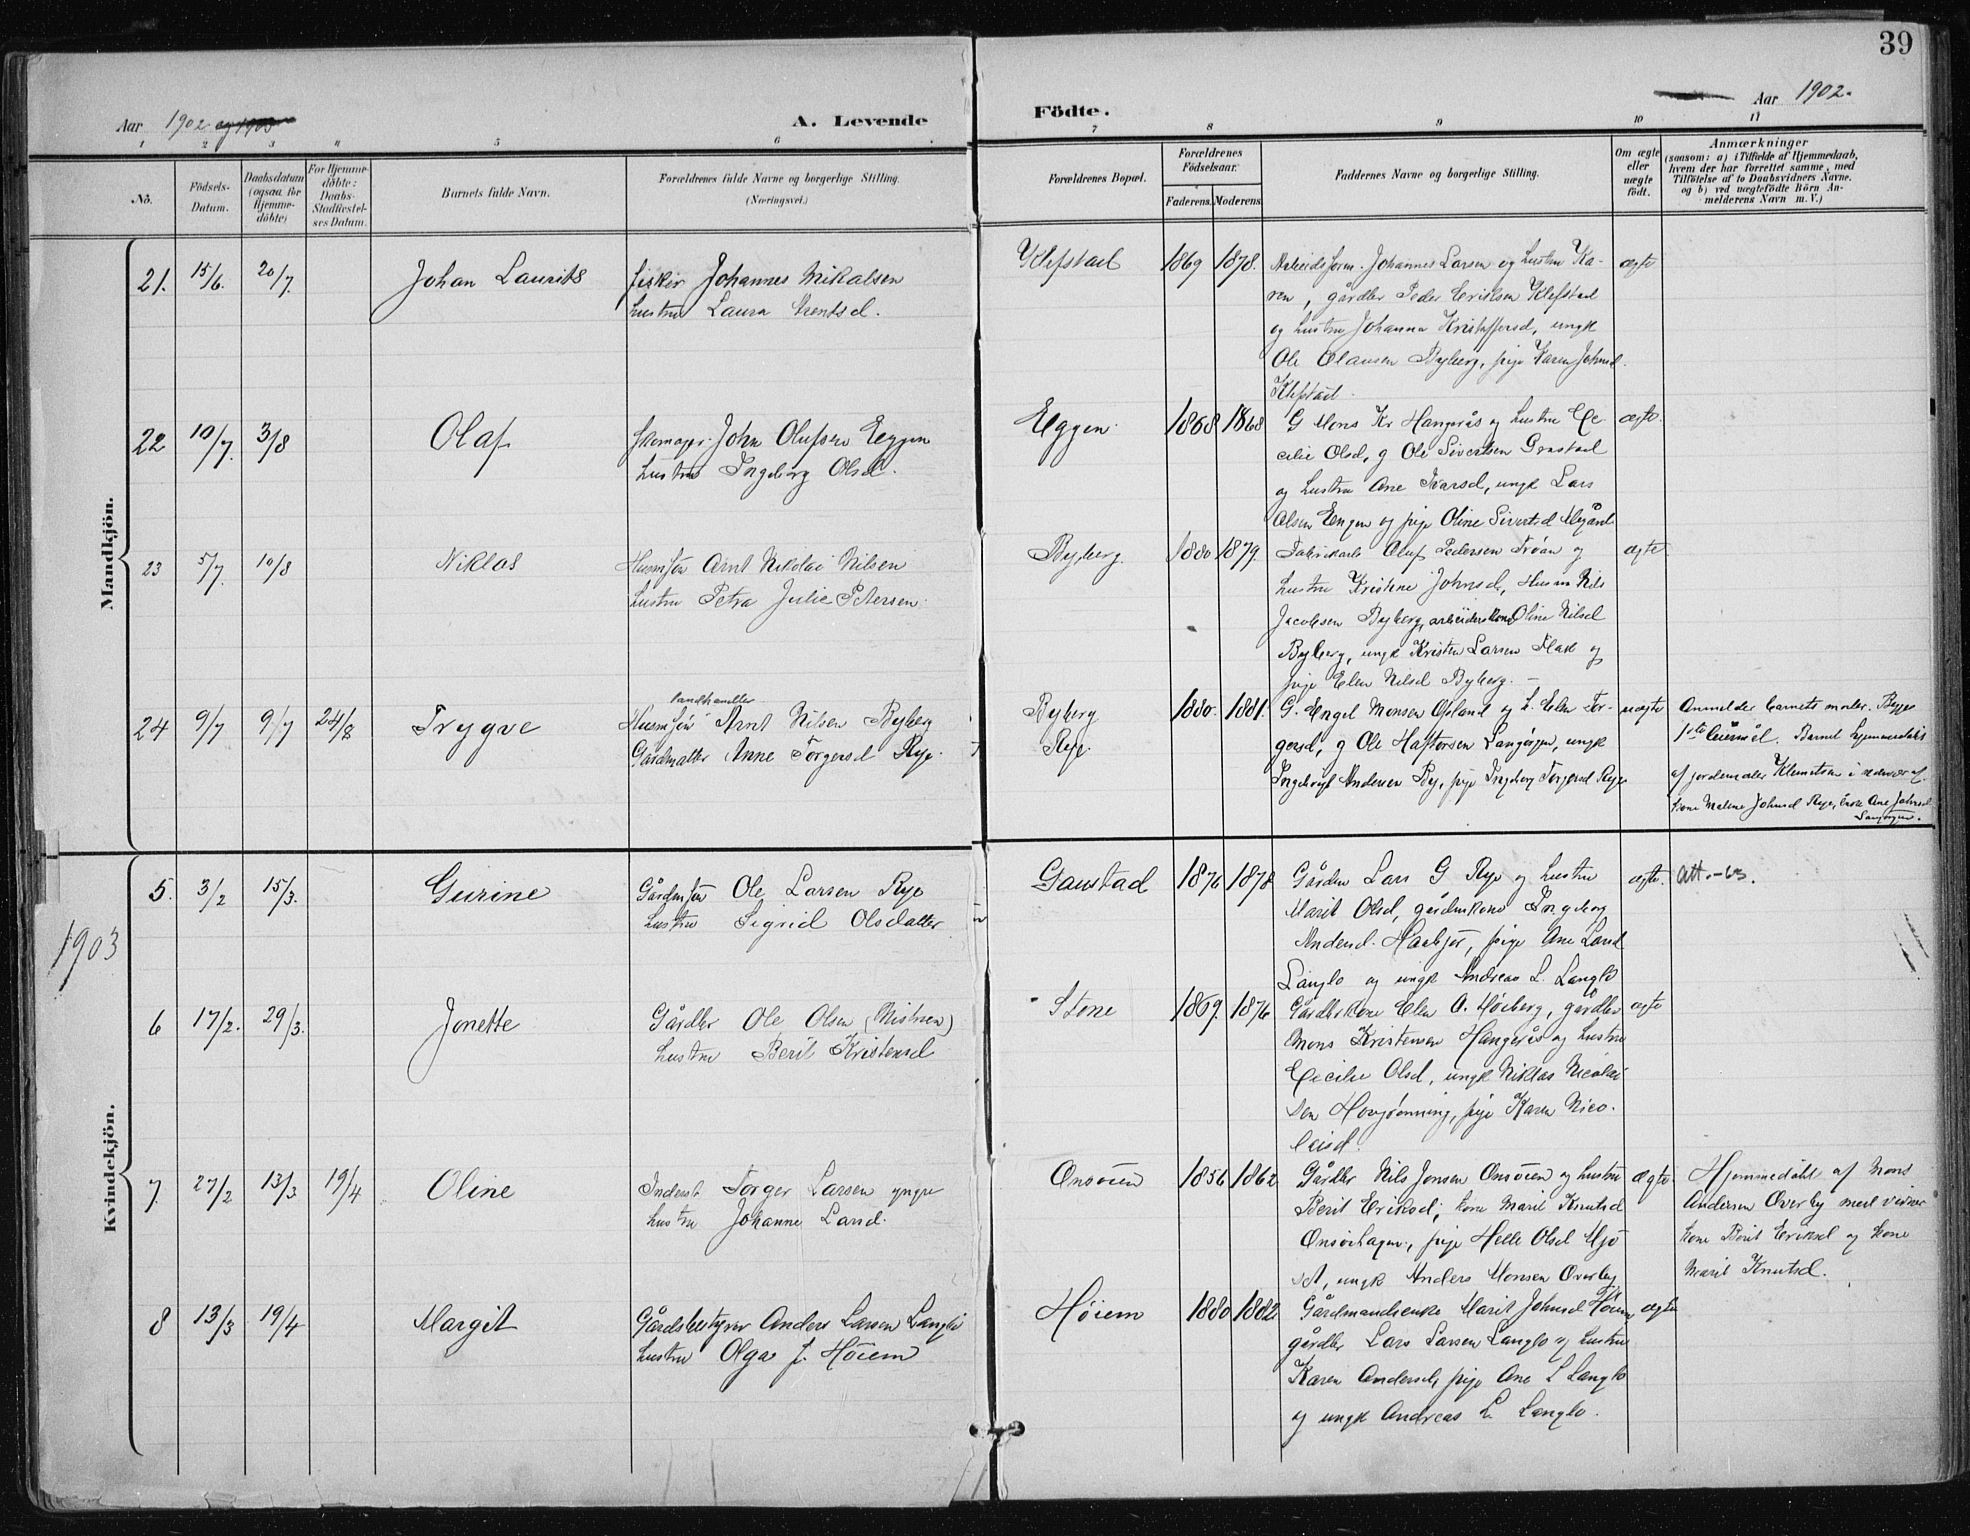 39
Aar 1902 og 1903
A. Levende
Födte.
Aar 1902.
1 2 3 4 5 6 7 8 9 10 11
No.
Födsels-
Datum.
Daabsdatum
(ogsaa for
Hjemme-
döbte)
For Hjemme-
döbte:
Daabs-
Stadfæstel-
ses Datum.
Barnets fulde Navn.
Forældrenes fulde Navne og borgerlige Stilling.
(Næringsvei.)
Forældrenes Bopæl.
Forældrenes
Födselsaar.
Faderens. Moderens.
Faddernes Navne og borgerlige Stilling.
Om ægte
eller
uægte
födt.
Anmærkninger
(saasom: a) i Tilfælde af Hjemmedaab,
hvem der har forrettet samme, med
Tilföielse af to Daabsvidners Navne.
og b) ved uægtefödte Börn An-
melderens Navn m. V.)
Mandkjön.
21. 15/6. 20/7. Johan Laurits
fisker Johannes Mikalsen
hustru Laura
Klefstad 1869 1878.
Arbeidsform. Johannes Larsen og hustru Ka-
ren, gårdbr Peder Eriksen Klefstad
og hustru Johanna Kristoffersd, ungk
Ole Olausen Byberg, pige Karen Johnsd.
Klefstad.
ægte
22 10/7. 3/8 Olaf
skomager. John Olufsen Eggen
hustru Ingeborg Olsd.
Eggen. 1868 1868
G Mons Kr Hangerås og hustru Ce
cilie Olsd, g Ole Sivertsen Gravstad
og hustru Ane Ivarsd, ungk Lars
Olsen Engen og pige Oline Sivertsd
ægte.
23 5/7. 10/8 Niklas
Husm søn Arnt Nikolai Nilsen
hustru Petra Julie Petersen.
Byberg. 1880 1879.
Fabrikarb Oluf Pedersen Trøan og
hustru Kristine Johnsd, Husm Nils
Jacobsen Byberg, arbeiderkone Oline Nilsd
Byberg, ungk Kristen Larsen Flak og
pige Elen Nilsd Byberg. –
ægte
24 9/7 9/7 24/8 Trygve
landhandler
Husmsøn Arnt Nilsen Byberg
Gårdmdatter Anne Torgersd Rye.
Byberg
Rye.
1880. 1881.
G. Engel Monsen Opland og h. Elen Tor-
gersd, g Ole Haftorsen Langørgen, ungk
Ingebrigt Andersen By, pige Ingeborg Torgersd Rye
uægte
Anmelder barnets moder. Begges
1ste leiermål. Barnet hjemmedøbt
af jordemoder Klemetsen i nærvær af
kone Malene Johnsd Rye, enke Ane Johnsd
Langørgen.
1903
Kvindekjön.
5. 3/2 15/3. Gurine
Gårdmsøn Ole Larsen Rye
hustru Sigrid Olsdatter
Gaustad 1876 1878
Gårdm Lars G Rye og hustru
Marit Olsd, gårdmkone Ingeborg
Andersd. Haabjør, pige Ane Larsd
Langlo og ungk Andreas L. Langlo
ægte. Att. -63.
6 17/2. 29/3. Jonette
Gårdbr Ole Olsen (Mistren)
hustru Berit Kristensd
Stene 1869. 1876
Gårdbrkone Elen O. Høiberg, gårdbr
Mons Kristensen Hangerås og hustru
Cecilie Olsd, ungk Niklas Nicolai
sen Hovjønning, pige Karen Nico-
leisd.
ægte
7. 27/2 13/3 19/4 Oline
Inderst Torger Larsen yngre
hustru Johanne Larsd.
Onsøien 1856 1862
Gårdbr Nils Jensen Onsøien og hustru
Berit Eriksd, kone Marit Knutsd
Onsøihagen, pige Helle Olsd Mjø
set, ungk Anders Monsen Overby
ægte.
Hjemmedøbt af Mons
Andersen Overby med vidner
kone Berit Eriksd og kone
Marit Knutsd.
8 13/3 19/4 Margit
Gårdsbestyrer Anders Larsen Langlo
hustru Olga J. Høiem
Høiem 1880 1882
Gårdmandsenke Marit Johnsd Høiem
gårdbr Lars Larsen Langlo og hustru
Karen Andersd, pige Ane L Langlo
og ungk Andreas L. Langlo.
ægte